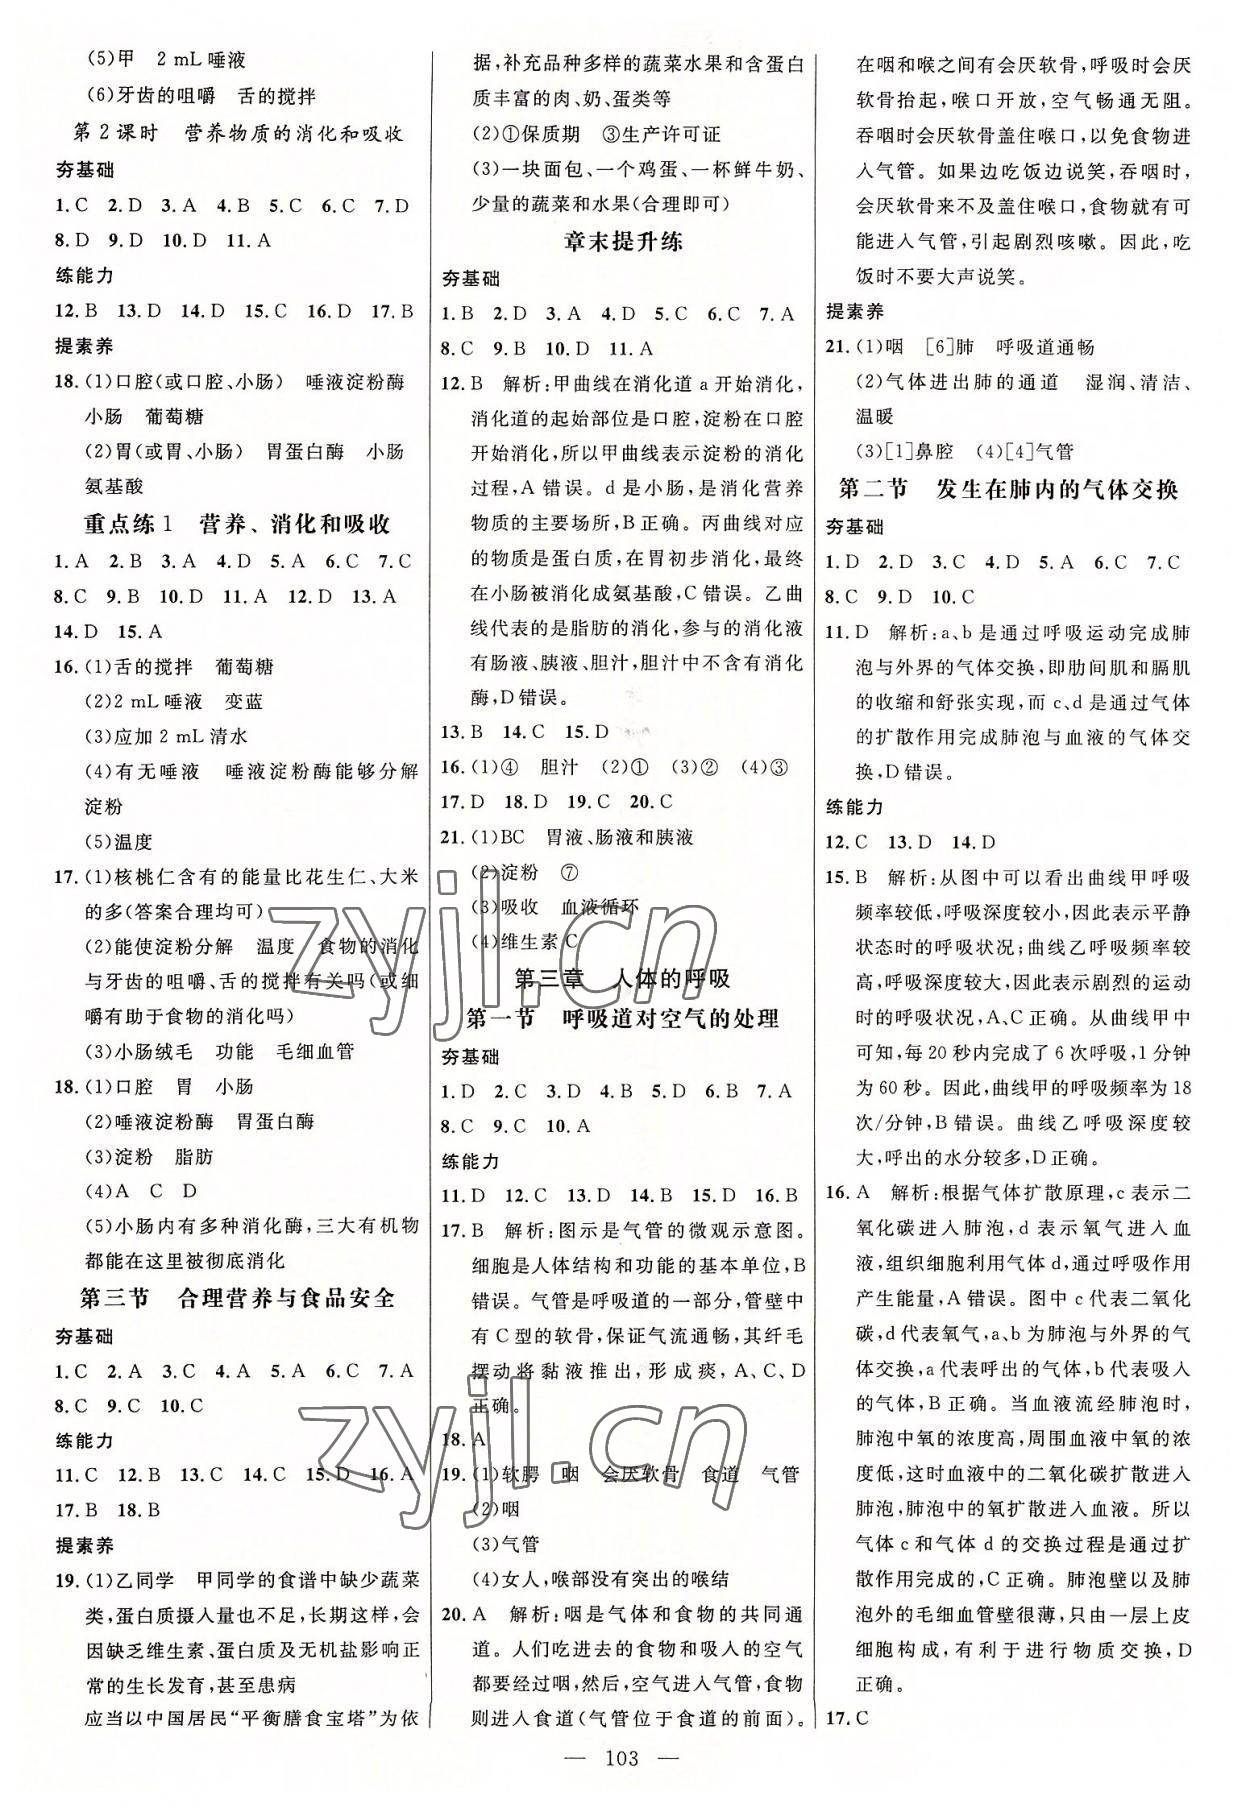 (5)甲　2 mL唾液
(6)牙齿的咀嚼　舌的搅拌
第2课时　营养物质的消化和吸收
夯基础
1.C　2.D　3.A　4.B　5.C　6.C　7.D
8.D　9.D　10.D　11.A
练能力
12.B　13.D　14.D　15.C　16.D　17.B
提素养
18.(1)口腔(或口腔、小肠)　唾液淀粉酶
小肠　葡萄糖
(2)胃(或胃、小肠)　胃蛋白酶　小肠
氨基酸
重点练1　营养、消化和吸收
1.A　2.B　3.A　4.D　5.A　6.C　7.C
8.C　9.B　10.D　11.A　12.D　13.A
14.D　15.A
16.(1)舌的搅拌　葡萄糖
(2)2 mL唾液　变蓝
(3)应加2 mL清水
(4)有无唾液　唾液淀粉酶能够分解
淀粉
(5)温度
17.(1)核桃仁含有的能量比花生仁、大米
的多(答案合理均可)
(2)能使淀粉分解　温度　食物的消化
与牙齿的咀嚼、舌的搅拌有关吗(或细
嚼有助于食物的消化吗)
(3)小肠绒毛　功能　毛细血管
18.(1)口腔　胃　小肠
(2)唾液淀粉酶　胃蛋白酶
(3)淀粉　脂肪
(4)A　C　D
(5)小肠内有多种消化酶,三大有机物
都能在这里被彻底消化
第三节　合理营养与食品安全
夯基础
1.C　2.A　3.C　4.A　5.A　6.C　7.A
8.C　9.C　10.C
练能力
11.C　12.B　13.C　14.C　15.D　16.A
17.B　18.B
提素养
19.(1)乙同学　甲同学的食谱中缺少蔬菜
类,蛋白质摄入量也不足,长期这样,会
因缺乏维生素、蛋白质及无机盐影响正
常的生长发育,甚至患病
应当以中国居民“平衡膳食宝塔”为依
据,补充品种多样的蔬菜水果和含蛋白
质丰富的肉、奶、蛋类等
(2)①保质期　③生产许可证
(3)一块面包、一个鸡蛋、一杯鲜牛奶、
少量的蔬菜和水果(合理即可)
章末提升练
夯基础
1.B　2.D　3.A　4.D　5.C　6.C　7.A
8.C　9.B　10.D　11.A
12.B　解析:甲曲线在消化道a开始消化,
消化道的起始部位是口腔,淀粉在口腔
开始消化,所以甲曲线表示淀粉的消化
过程,A错误。d是小肠,是消化营养
物质的主要场所,B正确。丙曲线对应
的物质是蛋白质,在胃初步消化,最终
在小肠被消化成氨基酸,C错误。乙曲
线代表的是脂肪的消化,参与的消化液
有肠液、胰液、胆汁,胆汁中不含有消化
酶,D错误。
13.B　14.C　15.D
16.(1)④　胆汁　(2)①　(3)②　(4)③
17.D　18.D　19.C　20.C
21.(1)BC　胃液、肠液和胰液
(2)淀粉　⑦
(3)吸收　血液循环
(4)维生素C
第三章　人体的呼吸
第一节　呼吸道对空气的处理
夯基础
1.D　2.C　3.D　4.B　5.D　6.B　7.A
8.C　9.C　10.A
练能力
11.D　12.C　13.D　14.B　15.D　16.B
17.B　解析:图示是气管的微观示意图。
细胞是人体结构和功能的基本单位,B
错误。气管是呼吸道的一部分,管壁中
有C型的软骨,保证气流通畅,其纤毛
摆动将黏液推出,形成痰,A、C、D
正确。
18.A
19.(1)软腭　咽　会厌软骨　食道　气管
(2)咽
(3)气管
(4)女人,喉部没有突出的喉结
20.A　解析:咽是气体和食物的共同通
道。人们吃进去的食物和吸入的空气
都要经过咽,然后,空气进入气管,食物
则进入食道(气管位于食道的前面)。
在咽和喉之间有会厌软骨,呼吸时会厌
软骨抬起,喉口开放,空气畅通无阻。
吞咽时会厌软骨盖住喉口,以免食物进
入气管。如果边吃饭边说笑,吞咽时,
会厌软骨来不及盖住喉口,食物就有可
能进入气管,引起剧烈咳嗽。因此,吃
饭时不要大声说笑。
提素养
21.(1)咽　[6]肺　呼吸道通畅
(2)气体进出肺的通道　湿润、清洁、
温暖
(3)[1]鼻腔　(4)[4]气管
第二节　发生在肺内的气体交换
夯基础
1.D　2.D　3.C　4.D　5.A　6.C　7.C
8.C　9.D　10.C
11.D　解析:a、b是通过呼吸运动完成肺
泡与外界的气体交换,即肋间肌和膈肌
的收缩和舒张实现,而c、d是通过气体
的扩散作用完成肺泡与血液的气体交
换,D错误。
练能力
12.C　13.D　14.D
15.B　解析:从图中可以看出曲线甲呼吸
频率较低,呼吸深度较小,因此表示平静
状态时的呼吸状况;曲线乙呼吸频率较
高,呼吸深度较大,因此表示剧烈的运动
时的呼吸状况,A、C正确。从曲线甲中
可知,每20秒内完成了6次呼吸,1分钟
为60秒。因此,曲线甲的呼吸频率为18
次/分钟,B错误。曲线乙呼吸深度较
大,呼出的水分较多,D正确。
16.A　解析:根据气体扩散原理,c表示二
氧化碳进入肺泡,d表示氧气进入血
液,组织细胞利用气体d,通过呼吸作用
产生能量,A错误。图中c代表二氧化
碳,d代表氧气,a、b为肺泡与外界的气
体交换,a代表呼出的气体,b代表吸入
的气体,B正确。当血液流经肺泡时,
肺泡中氧的浓度高,周围血液中氧的浓
度低,这时血液中的二氧化碳扩散进入
肺泡,肺泡中的氧扩散进入血液。所以
气体c和气体d的交换过程是通过扩
散作用完成的,C正确。肺泡壁以及肺
泡外的毛细血管壁很薄,只由一层上皮
细胞构成,有利于进行物质交换,D
正确。
17.C
— 103 —
zyjl.cn
zyjl.cn